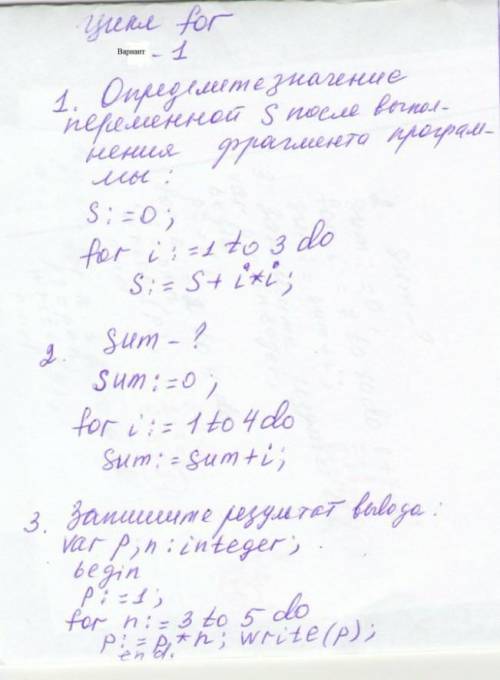 Цикл for
Вариант - 1
1. Определите значение
переменной S после выпол-
нения фрагмента програм-
мы:
S:=0;
for i:=1 to 3 do
S:=S+i*i;
2. Sum - ?
Sum:=0;
for i:=1 to 4 do
Sum:=Sum+i;
3. Запишите результат вывода:
var p,n:integer;
begin
p:=1;
for n:=3 to 5 do
p:=p*n; write(p);
end.